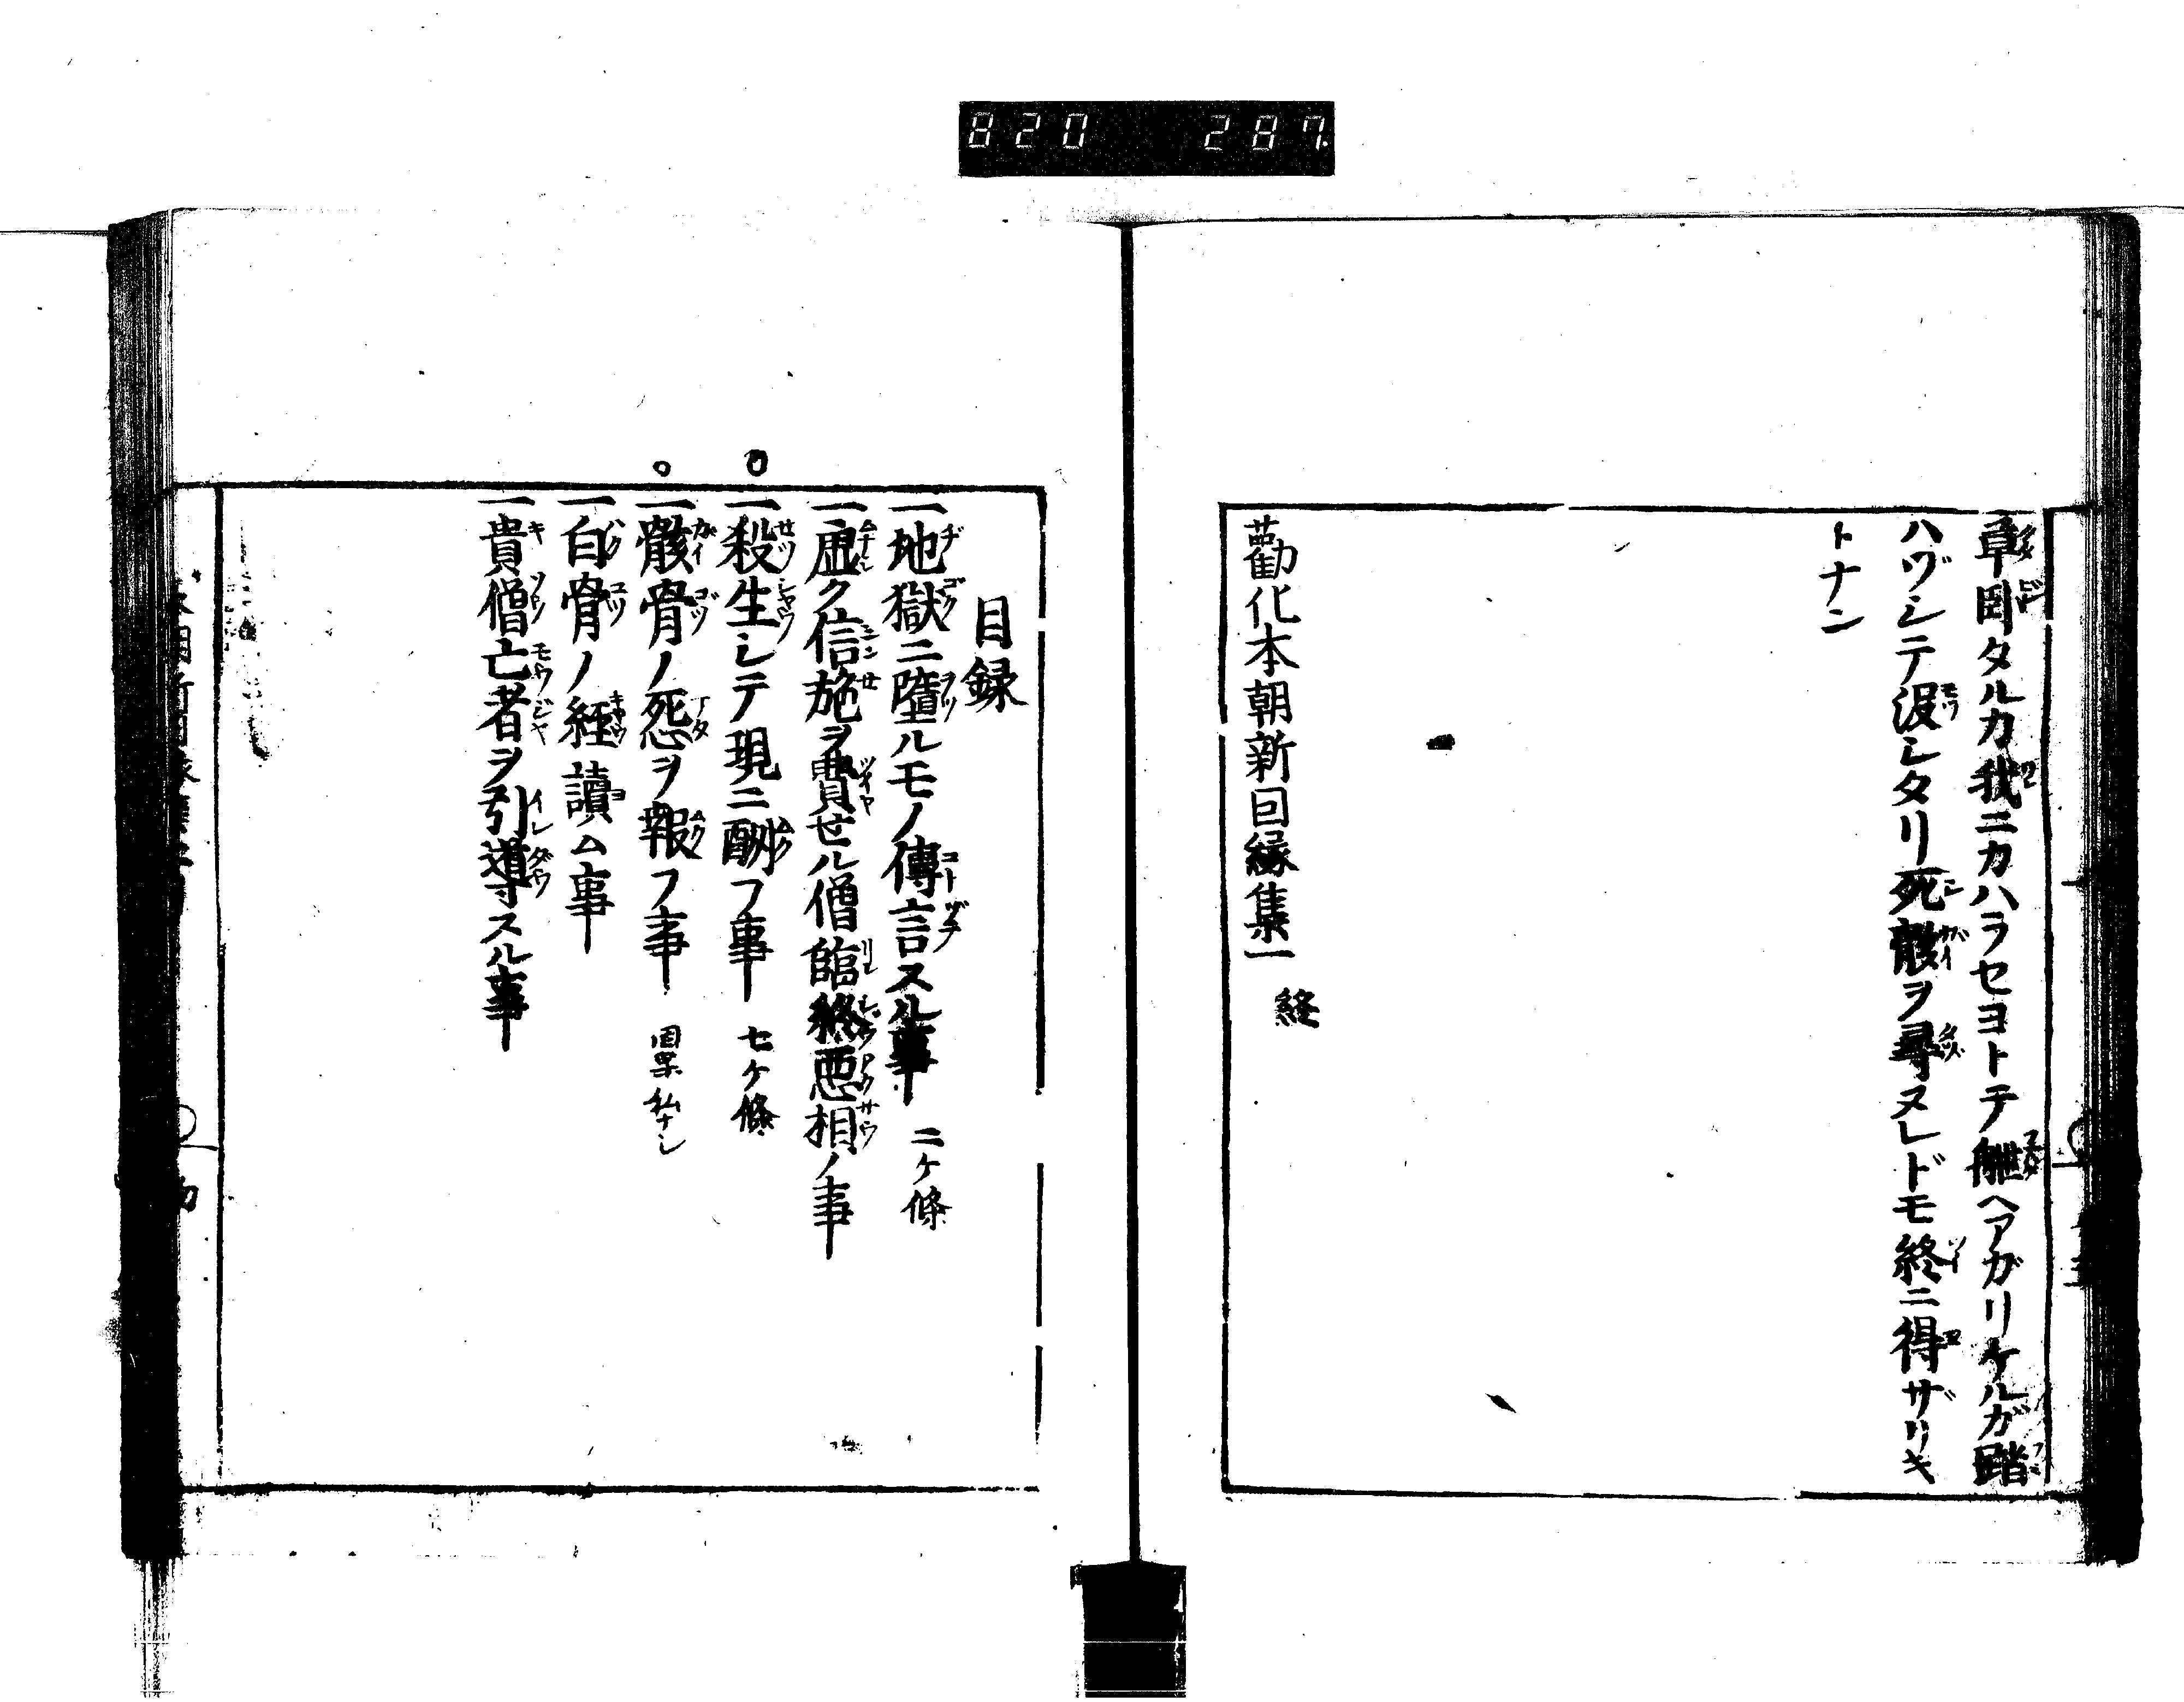 820 287
章臥タルカ我ニカハラセヨトテ舩ヘアガリケルガ踏
ハヅシテ沒シタリ死骸ヲ尋ヌレドモ終ニ得ザリキ
トナン
勸化本朝新因縁集一 終
目録
一地獄ニ墮ルモノ傳言スル事 二ケ條
一虚ク信施ヲ費セル僧臨終悪相ノ事
一殺生シテ現ニ酬フ事 七ケ條
一骸骨ノ死怨ヲ報フ事 因果私ナシ
一白骨ノ経讀ム事
一貴僧亡者ヲ引導スル事